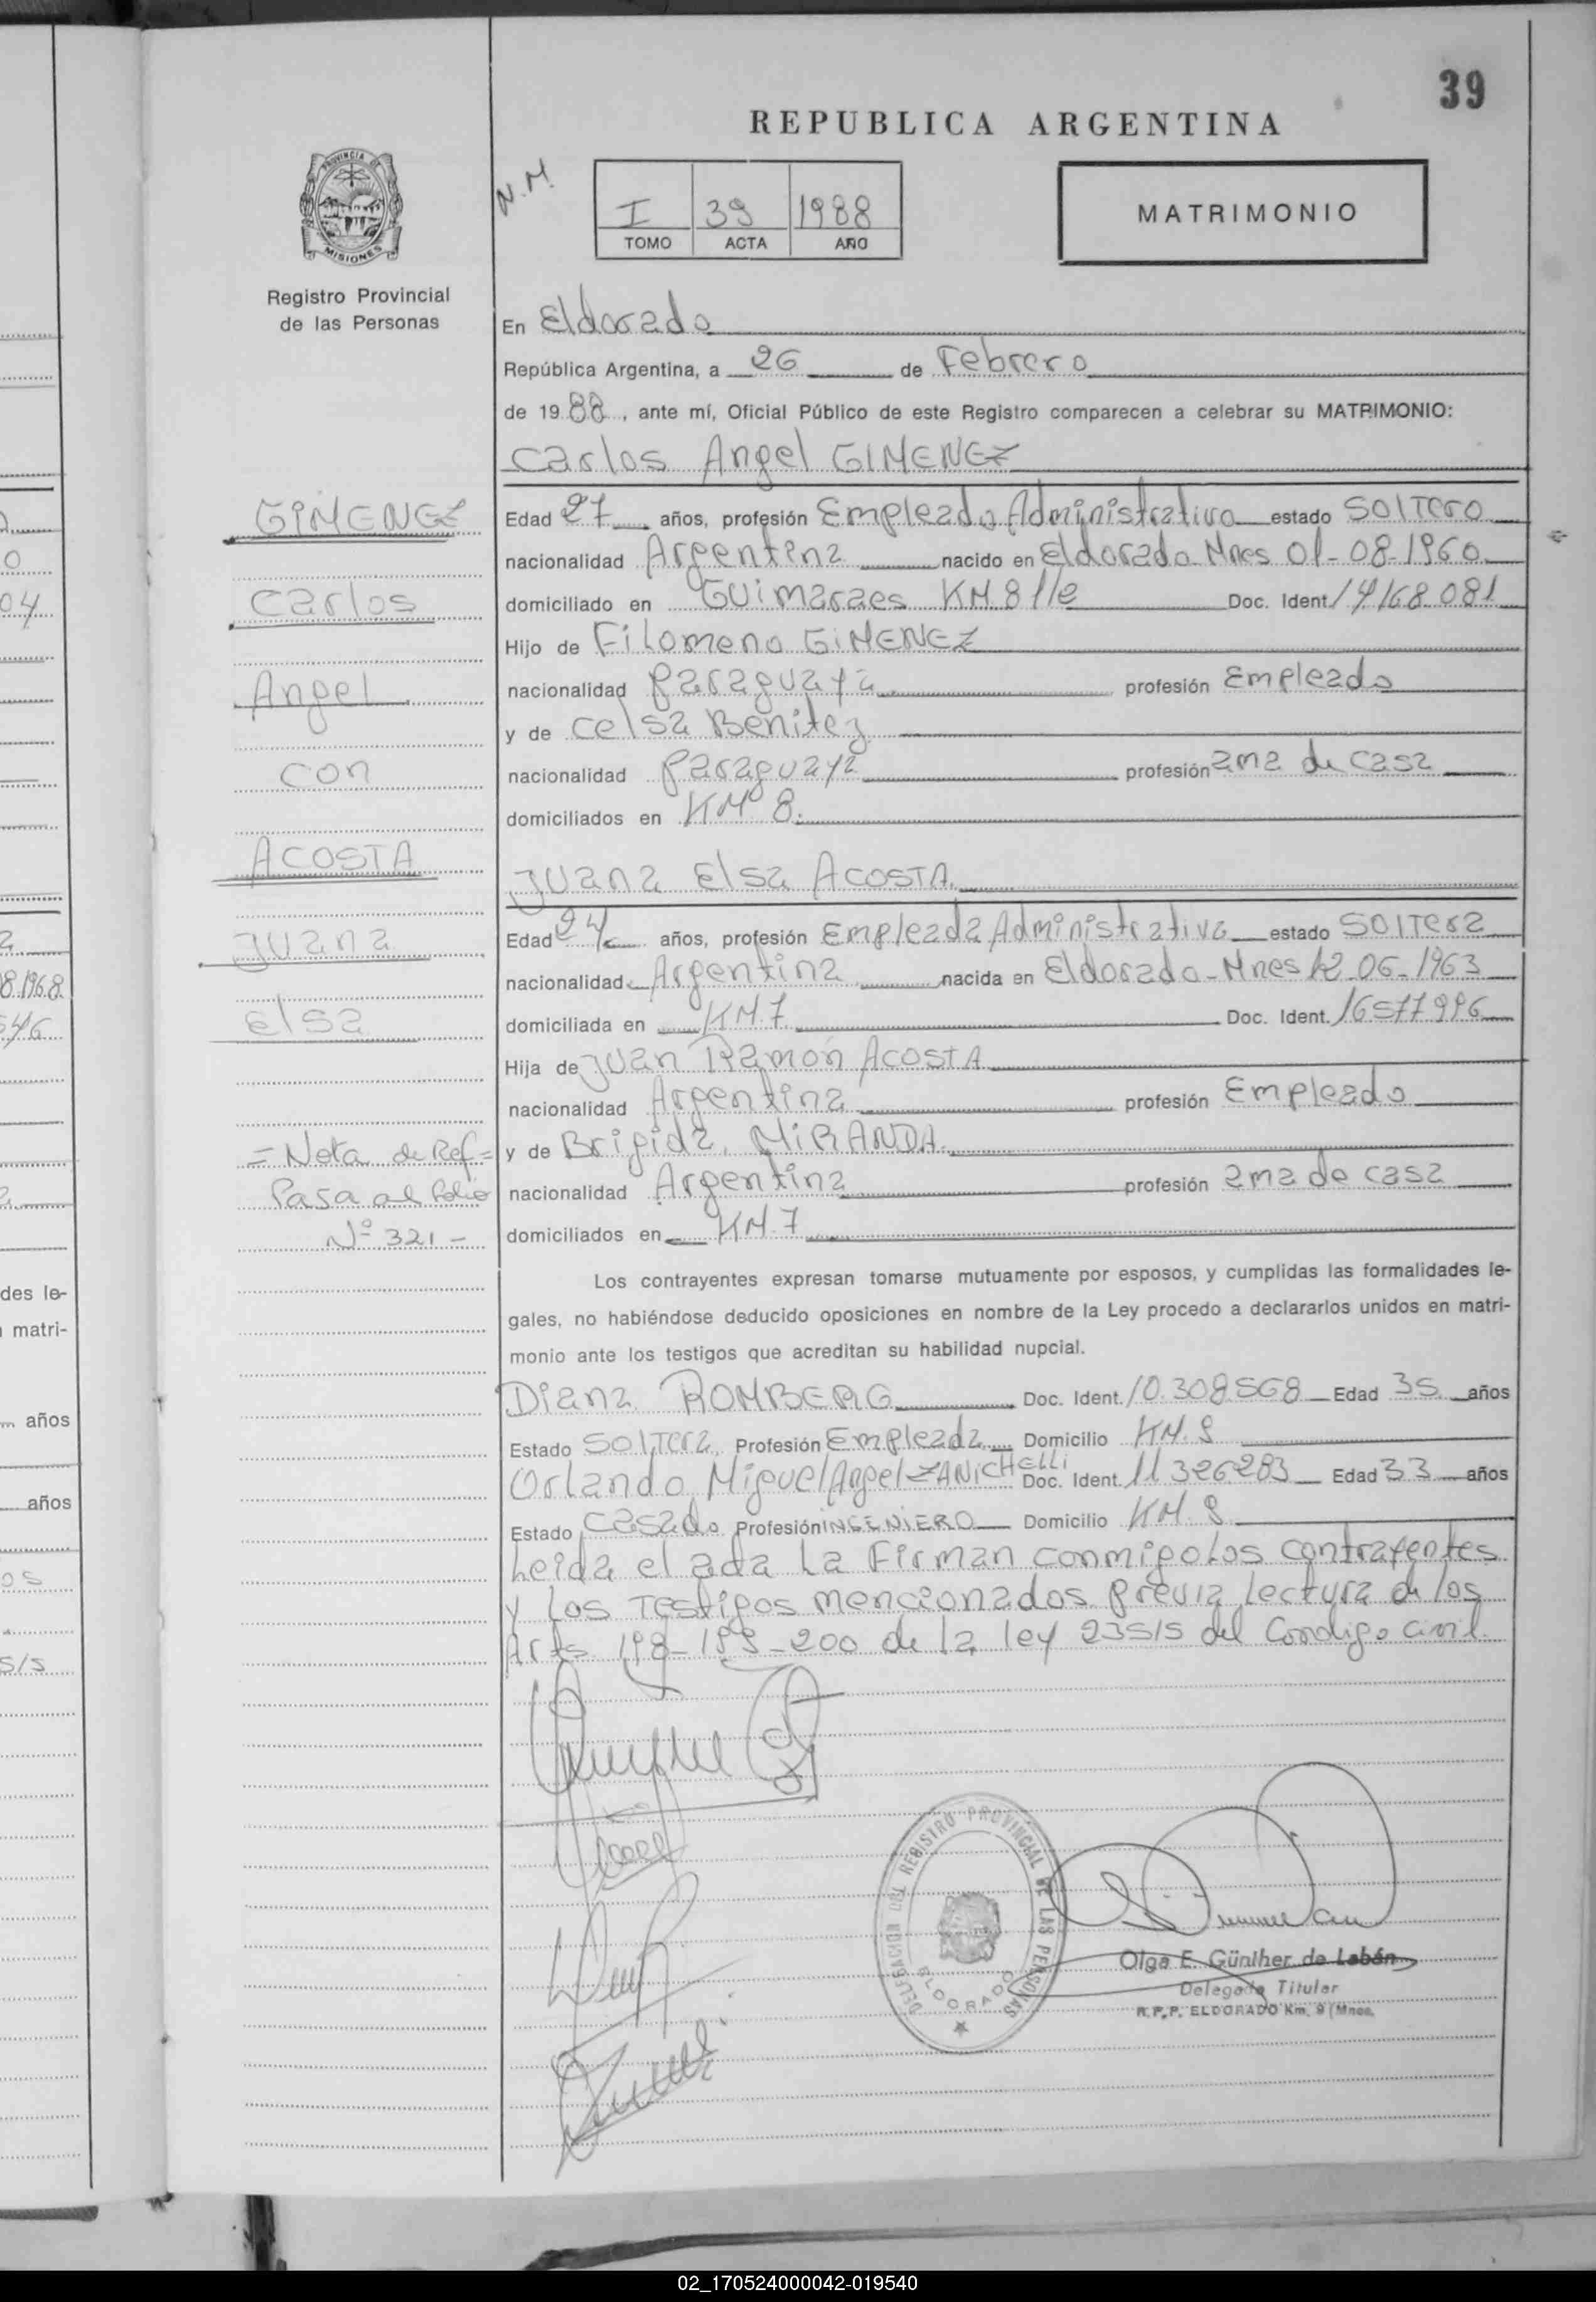 39
REPUBLICA ARGENTINA
N.M.
I 39 1988
TOMO ACTA AÑO
MATRIMONIO
PROVINCIA DE MISIONES
Registro Provincial
de las Personas
En Eldorado
República Argentina, a 26 de Febrero
de 1988, ante mí, Oficial Público de este Registro comparecen a celebrar su MATRIMONIO:
Carlos Angel GIMENEZ
Edad 27 años, profesión Empleado Administrativo estado SOLTERO
nacionalidad Argentina nacido en Eldorado Mnes 01-08-1960
domiciliado en Guimaraes KM 8 Doc. Ident. 14168.081
Hijo de Filomeno GIMENEZ
nacionalidad Paraguaya profesión Empleado
y de Celsa Benitez
nacionalidad Paraguaya profesión ama de casa
domiciliados en KM 8.
Juana Elsa ACOSTA
Edad 24 años, profesión Empleada Administrativa estado SOLTERA
nacionalidad Argentina nacida en Eldorado-Mnes 12-06-1963
domiciliada en KM.7 Doc. Ident. 16577996
Hija de Juan Ramón ACOSTA
nacionalidad Argentina profesión Empleado
y de Brigida MIRANDA
nacionalidad Argentina profesión ama de casa
domiciliados en KM.7
GIMENEZ
Carlos
Angel
con
ACOSTA
Juana
Elsa
=Nota de Ref=
Pasa al folio
Nº 321-
Los contrayentes expresan tomarse mutuamente por esposos, y cumplidas las formalidades le-
gales, no habiéndose deducido oposiciones en nombre de la Ley procedo a declararlos unidos en matri-
monio ante los testigos que acreditan su habilidad nupcial.
Diana ROMBERG Doc. Ident. 10.308568 Edad 35 años
Estado SOLTERA Profesión Empleada Domicilio KM. 9
Orlando Miguel Angel ZANICHELLI Doc. Ident. 11326283 Edad 33 años
Estado Casado Profesión INGENIERO Domicilio KM. 9
Leida el acta La Firman conmigo Los contrayentes
y Los Testigos mencionados previa lectura de los
Arts. 198-199-200 de la ley 23515 del Condigo civil.
DELEGACION DEL REGISTRO PROVINCIAL DE LAS PERSONAS
ELDORADO
Olga E. Günther de Labán
Delegada Titular
R.P.P. ELDORADO Km. 9 (Mnes.
des le-
matri-
años
años
02_170524000042-019540